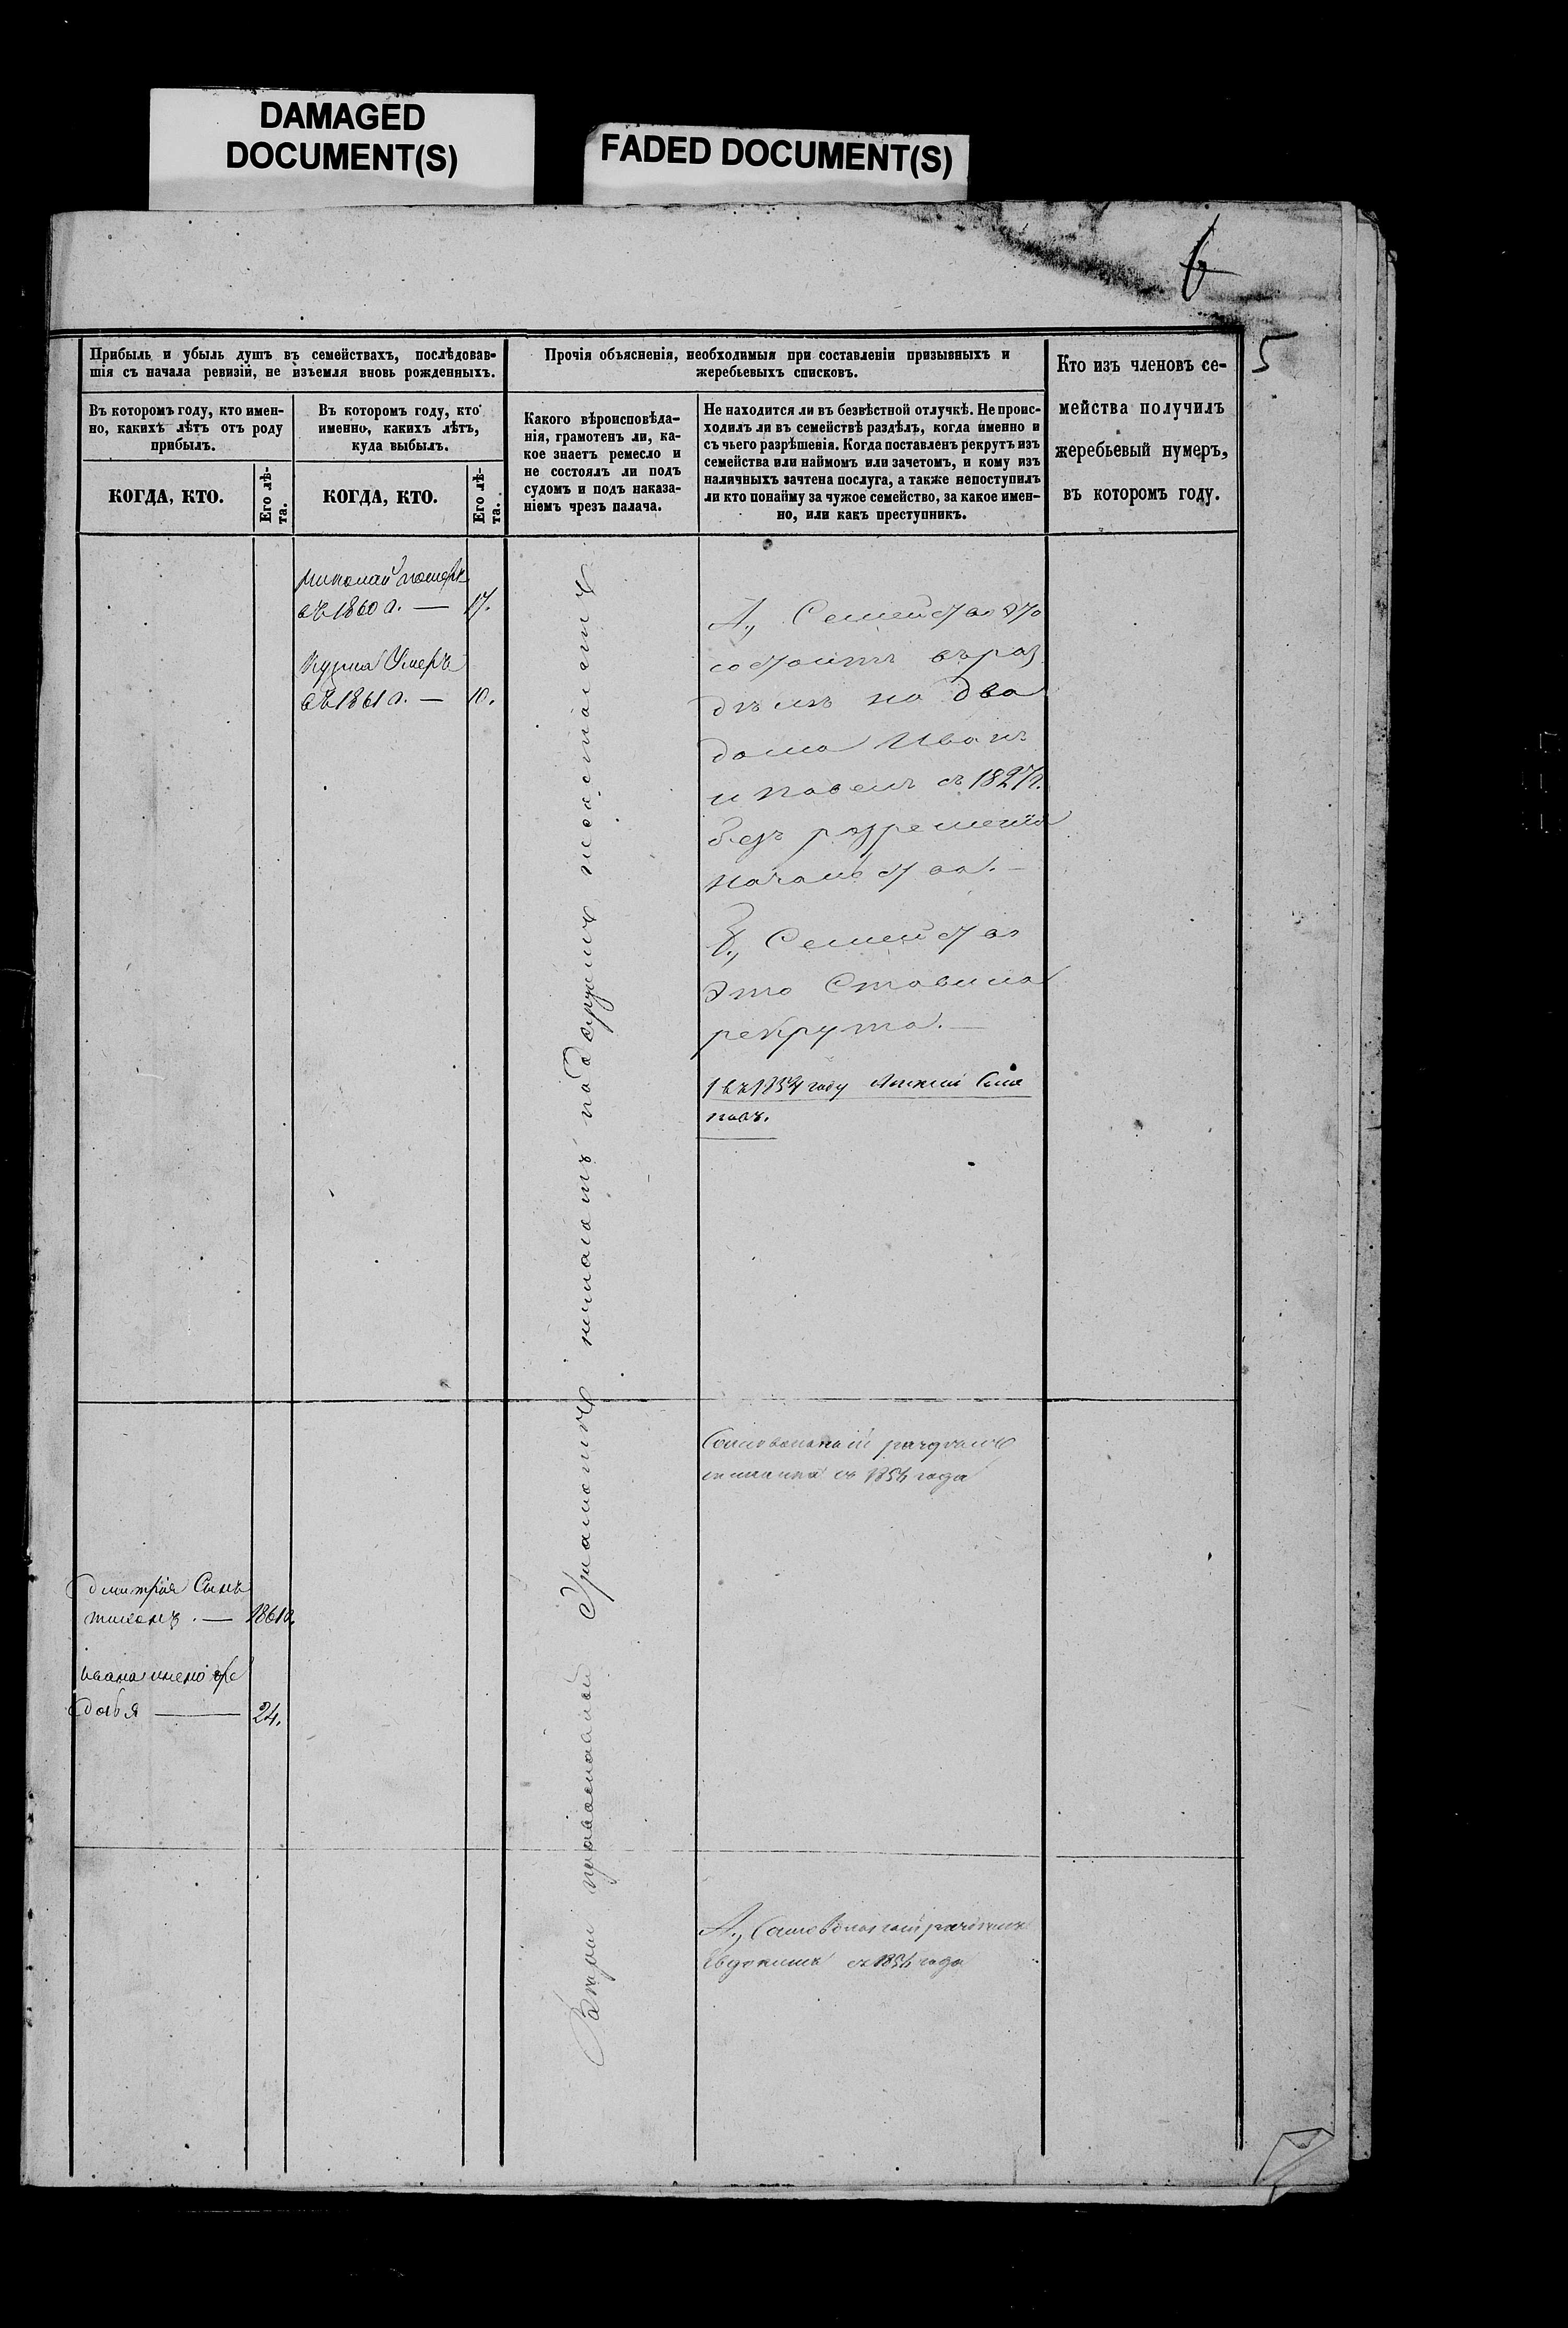 DAMAGED
DOCUMENT(S)
FADED DOCUMENT(S)
6
5
Прибыль и убыль душъ въ семействахъ, послѣдовав-
шія съ начала ревизій, не изъемля вновь рожденныхъ.
Въ которомъ году, кто имен-
но, какихъ лѣтъ отъ роду
прибылъ.
КОГДА, КТО.
Его лѣ-
та.
Въ которомъ году, кто
именно, какихъ лѣтъ,
куда выбылъ.
КОГДА, КТО.
Его лѣ-
та.
Прочія объясненія, необходимыя при составленіи призывныхъ и
жеребьевыхъ списковъ.
Какого вѣроисповѣда-
нія, грамотенъ ли, ка-
кое знаетъ ремесло и
не состоялъ ли подъ
судомъ и подъ наказа-
ніемъ чрезъ палача.
Не находится ли въ безвѣстной отлучкѣ. Не проис-
ходилъ ли въ семействѣ раздѣлъ, когда именно и
съ чьего разрѣшенія. Когда поставленъ рекрутъ изъ
семейства или наймомъ или зачетомъ, и кому изъ
наличныхъ зачтена послуга, а также непоступилъ
ли кто понайму за чужое семейство, за какое имен-
но, или какъ преступникъ.
Кто изъ членовъ се-
мейства получилъ
жеребьевый нумеръ,
въ которомъ году.
Николай
въ 1860 г. — 17.
Кузма Умеръ
въ 1861 г. — 10.
А., Семейство это
состоитъ въ раз
дѣлъ на два
дома Иванъ
и Павелъ съ 1827 г.
безъ разрешенія
началства. —
Б., Семейство
Это Ставило
рекрута. —
1 въ 1854 году
Самовольной
съ 1856 года
Дмитрія Сынъ
— 1861 г.
Ивана
— 24.
А., Самовольной
Евдокимъ съ 1856 года
православной